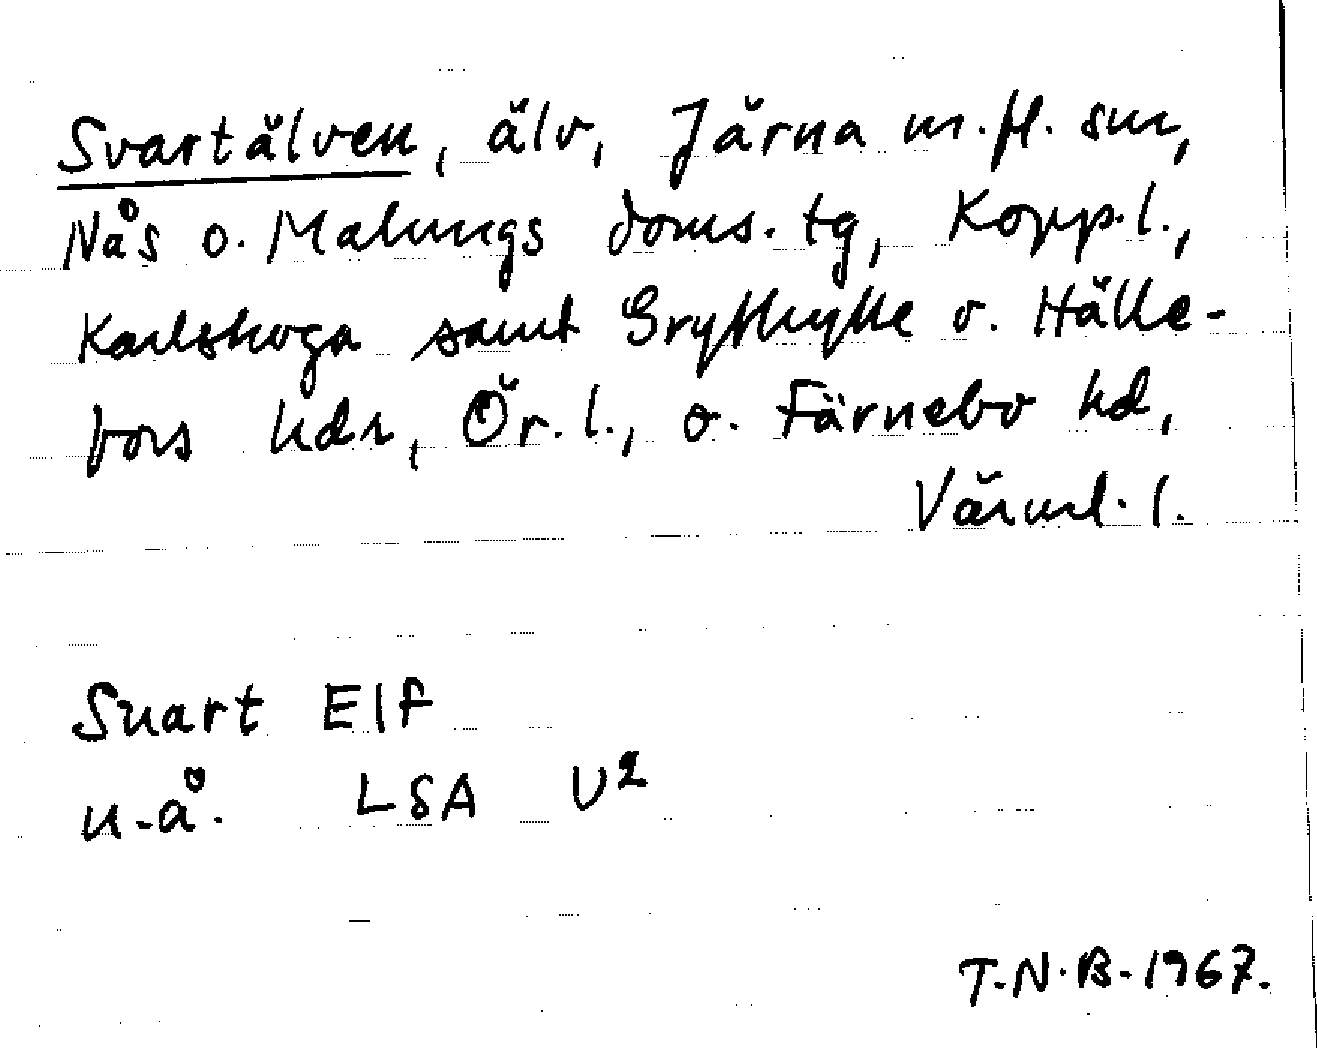 Svartälven, älv, Järna m.fl. snr,
Nås o. Malungs doms. tg, Kopp.l.,
Karlskoga samt Grythytte o. Hälle-
fors hdr, Ör. l., o. Färnebo hd,
Värml. l.
Suart Elf
u.å. LSA U2
T.N.B. 1967.